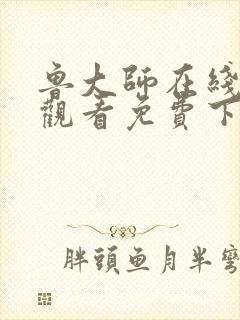 魯大師在綫
觀看免費下
胖頭魚月半彎